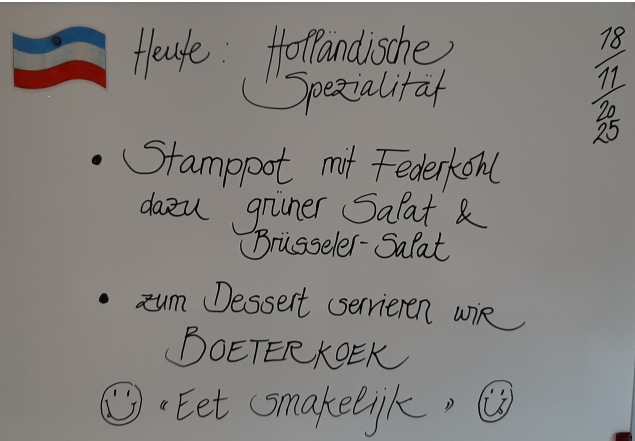 Heute: Holländische
Spezialität
18
11
20
25
• Stamppot mit Federkohl
dazu grüner Salat &
Brüsseler-Salat
• zum Dessert servieren wir
BOETERKOEK
«Eet smakelijk»